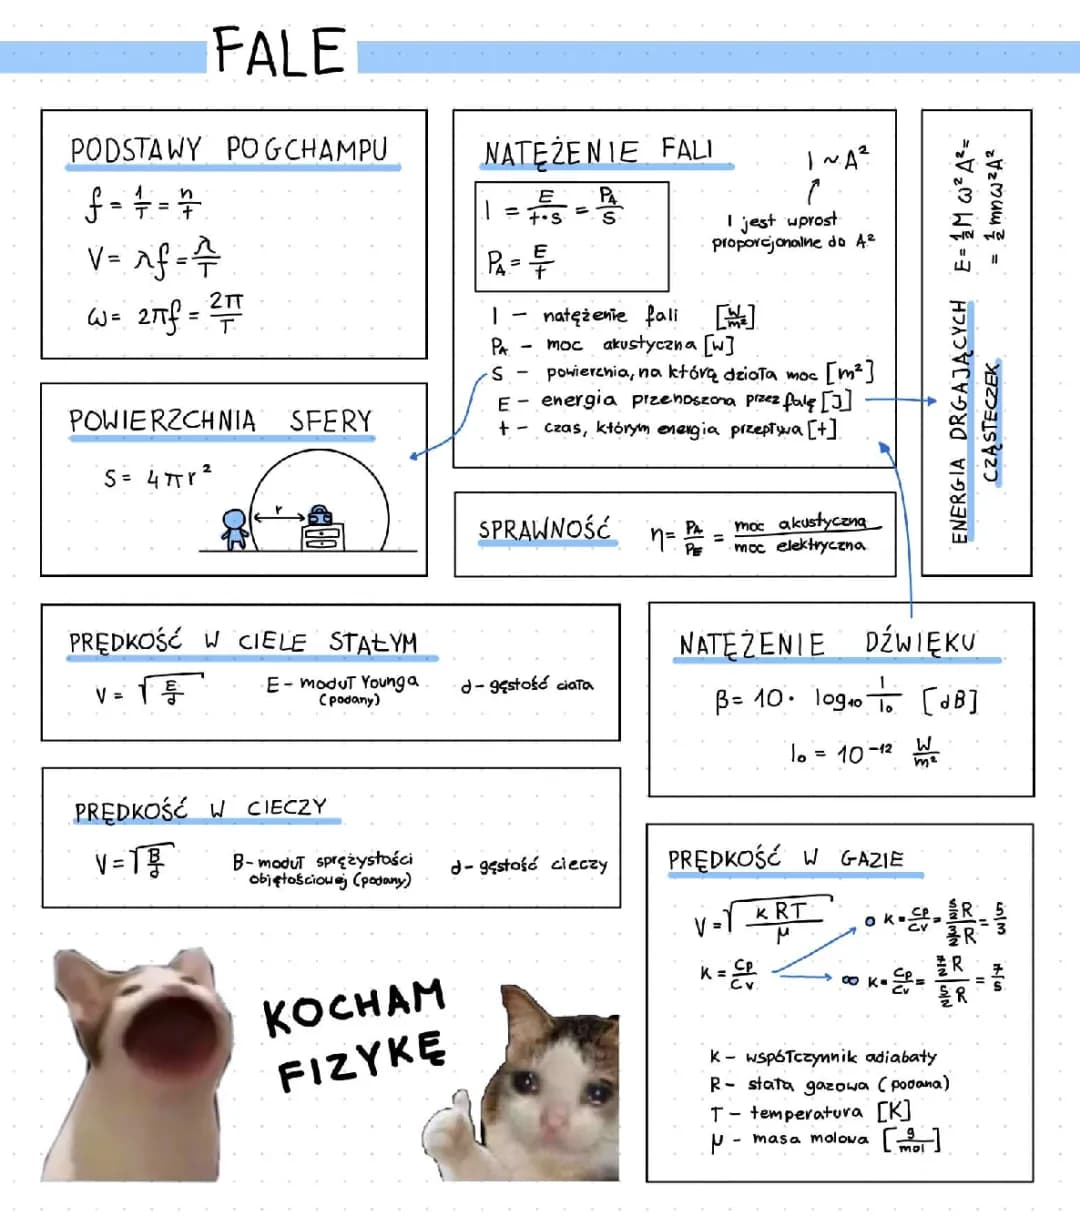 FALE
PODSTAWY POGCHAMPU
f = 1/T = n/t
V = λf = λ/T
ω = 2πf = 2π/T
NATĘŻENIE FALI
I = E/t·s = PA/S
PA = E/t
I ~ A²
I jest wprost
proporcjonalne do A²
I – natężenie fali [W/m²]
PA – moc akustyczna [W]
S – powierchnia, na którą działa moc [m²]
E – energia przenoszona przez falę [J]
t – czas, którym energia przepływa [t]
ENERGIA DRGAJĄCYCH
CZĄSTECZEK
E = ½ M ω² A² =
= ½ mnω²A²
POWIERZCHNIA SFERY
S = 4πr²
r
SPRAWNOŚĆ
η = PA/PE = moc akustyczna/moc elektryczna
PRĘDKOŚĆ W CIELE STAŁYM
V = √E/d
E – moduł Younga
(podany)
d – gęstość ciała
NATĘŻENIE DŹWIĘKU
β = 10 · log₁₀ I/I₀ [dB]
I₀ = 10⁻¹² W/m²
PRĘDKOŚĆ W CIECZY
V = √B/d
B – moduł sprężystości
objętościowej (podany)
d – gęstość cieczy
PRĘDKOŚĆ W GAZIE
V = √KRT/μ
K = Cp/Cv
o K = Cp/Cv = 5/2R/3/2R = 5/3
∞ K = Cp/Cv = 7/2R/5/2R = 7/5
K – współczynnik adiabaty
R – stała gazowa (podana)
T – temperatura [K]
μ – masa molowa [g/mol]
KOCHAM
FIZYKĘ